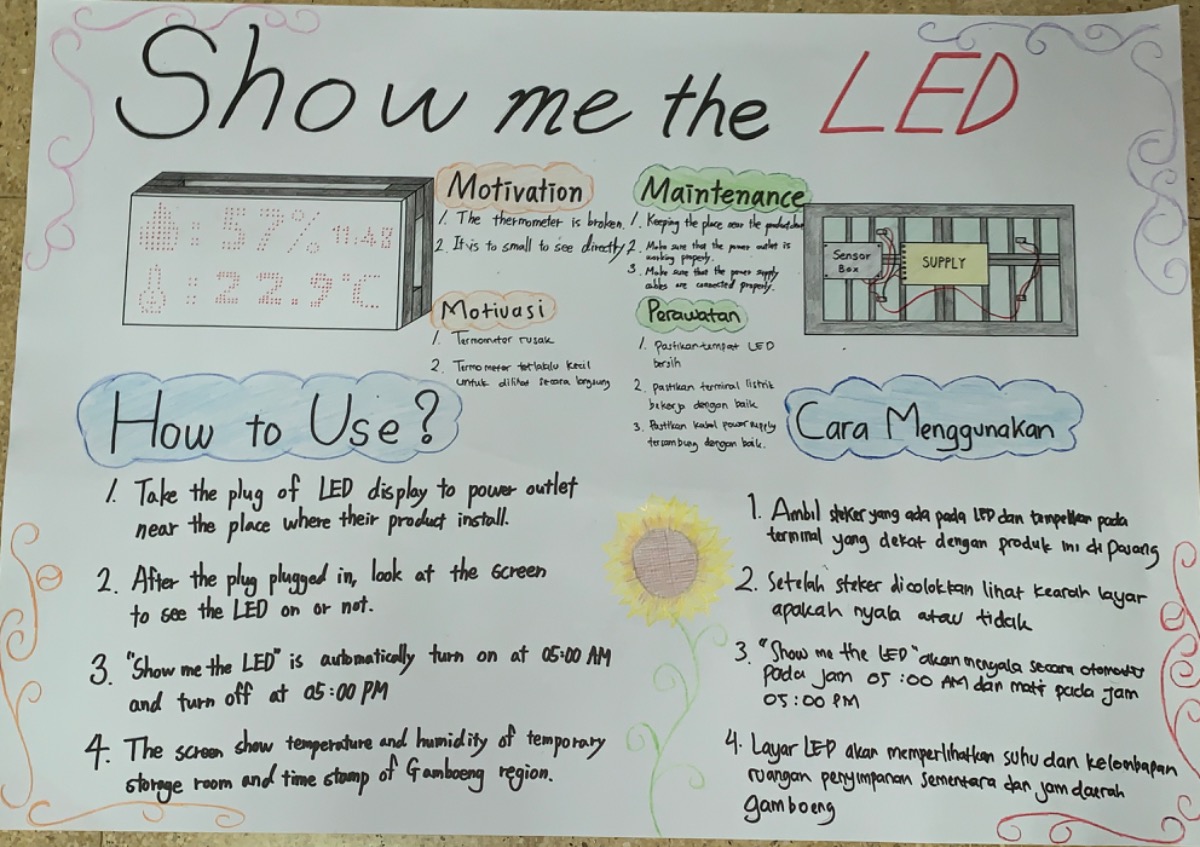 Show me the LED
🌢: 57% 11:48
🌡: 22.9°C
Motivation
1. The thermometer is broken.
2. It is to small to see directly
Motivasi
1. Termometer rusak
2. Termometer terlalalu kecil
untuk dilihat secara langsung
Maintenance
1. Keeping the place near the product
2. Make sure that the power outlet is
working properly.
3. Make sure that the power supply
cables are connected properly.
Perawatan
1. Pastikan tempat LED
bersih
2. Pastikan terminal listrik
bekerja dengan baik
3. Pastikan kabel power supply
tersambung dengan baik.
Sensor
Box
SUPPLY
How to Use?
1. Take the plug of LED display to power outlet
near the place where their product install.
2. After the plug plugged in, look at the screen
to see the LED on or not.
3. "Show me the LED" is automatically turn on at 05:00 AM
and turn off at 05:00 PM
4. The screen show temperature and humidity of temporary
storage room and time stamp of Gamboeng region.
Cara Menggunakan
1. Ambil steker yang ada pada LED dan tempelkan pada
terminal yang dekat dengan produk ini di pasang
2. Setelah steker dicolokkan lihat kearah layar
apakah nyala atau tidak
3. "Show me the LED" akan menyala secara otomatis
pada jam 05:00 AM dan mati pada jam
05:00 PM
4. Layar LED akan memperlihatkan suhu dan kelembapan
ruangan penyimpanan sementara dan jam daerah
gamboeng